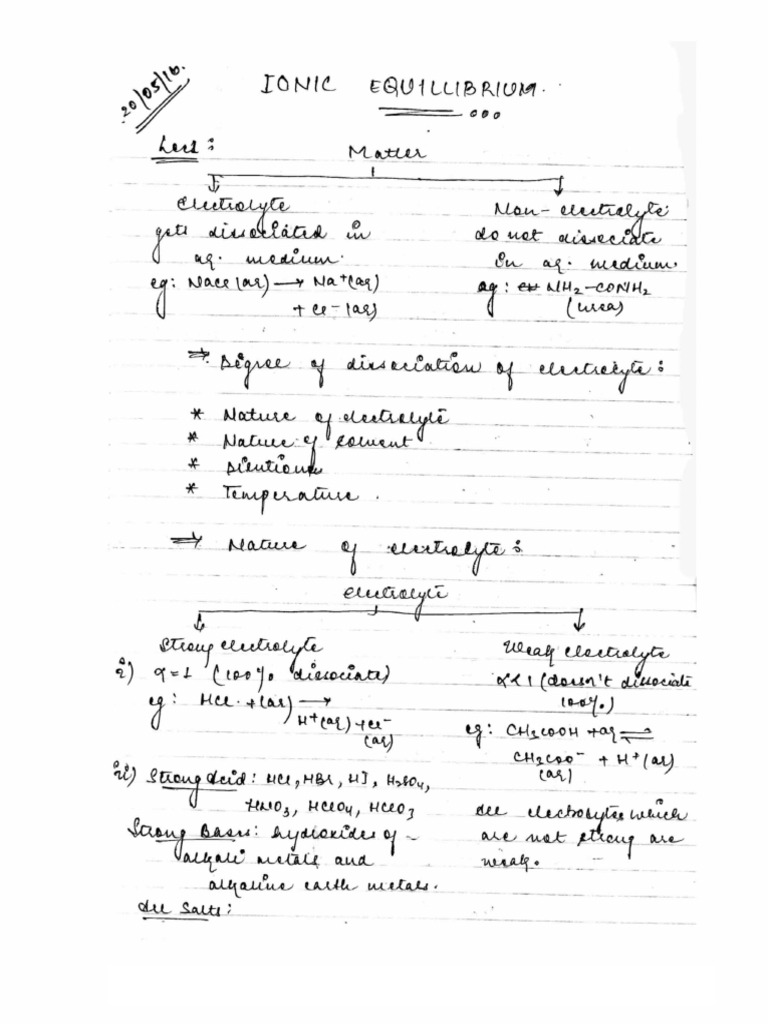 20/05/16.
IONIC EQUILLIBRIUM.
Lec1:
Matter
Electrolyte
gets dissociated in
aq. medium.
eg: NaCl(aq) → Na+(aq)
+ Cl-(aq)
Non-electrolyte
do not dissociate
in aq. medium.
eg: NH2-CONH2
(urea)
⇒ Degree of dissociation of electrolyte:
* Nature of electrolyte
* Nature of solvent
* Dilution
* Temperature.
⇒ Nature of electrolyte:
electrolyte
Strong electrolyte
i) α=1 (100% dissociate)
eg: HCl + (aq) →
H+(aq) + Cl-
(aq)
Weak electrolyte
α<1 (doesn't dissociate
100%)
eg: CH3COOH + aq ⇌
CH3COO- + H+(aq)
(aq)
ii) Strong Acid: HCl, HBr, HI, H2SO4,
HNO3, HClO4, HClO3
Strong Bases: hydroxides of
alkali metals and
alkaline earth metals.
All Salts:
All electrolytes which
are not strong are
weak.